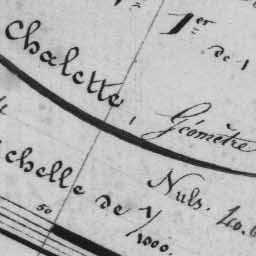 1er
de 1
chalette, Géomètre
chelle de 1/1000.
Nuls. 40.
50